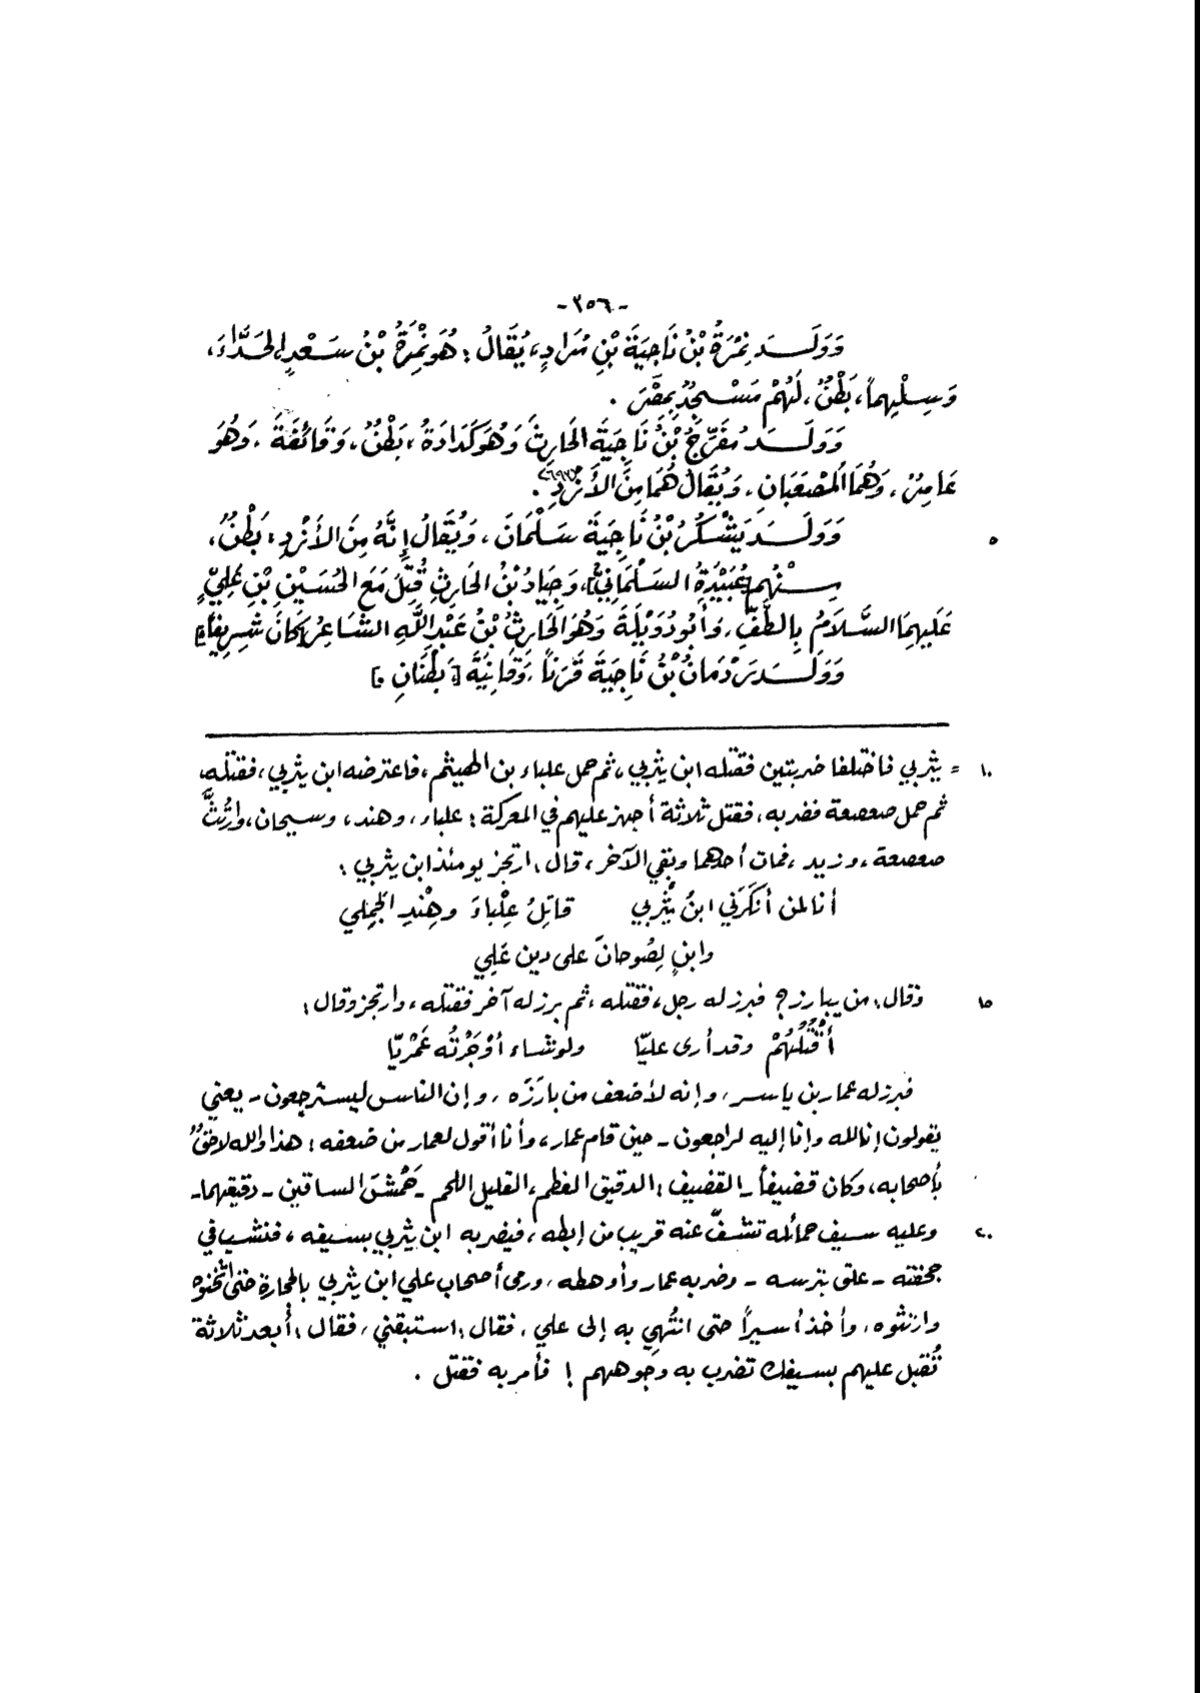 -٣٥٦-
وَوَلَـــدَ نِمْرَةُ بْنُ نَاجِيَةَ بْنِ مُرَادٍ، يُقَالُ: هُوَ نِمْرَةُ بْنُ سَعْدٍ، الحَدَّاءَ،
وَسِلْهِماً، بَطْنٌ، لَهُمْ مَسْجِدٌ بِمِصْرَ .
وَوَلَـــدَ مُفَرِّجُ بْنُ نَاجِيَةَ الحَارِثَ وَهُوَ كَدَادَةُ، بَطْنٌ، وَقَائِفَةَ، وَهُوَ
عَامِرٌ، وَهُمَا المُصْعَبَانِ، وَيُقَالُ هُمَا مِنَ الأَزْدِ .
٥ وَوَلَـــدَ يَشْكُرُ بْنُ نَاجِيَةَ سَلْمَانَ، وَيُقَالُ إِنَّهُ مِنَ الأَزْدِ، بَطْنٌ،
مِــنْهُم [عُبَيْدَةُ السَلْمَانِيُّ]، وَجِيَادُ بْنُ الحَارِثِ قُتِلَ مَعَ الحُسَيْنِ بْنِ عَلِيٍّ
عَلَيْهِمَا السَّلَامُ بِالطَّفِّ، وَأَبُو دُوَيْلَةَ وَهُوَ الحَارِثُ بْنُ عَبْدِ اللَّهِ الشَاعِرُ [كَانَ شَرِيفاً]
وَوَلَـــدَ رَدْمَانُ بْنُ نَاجِيَةَ قَرَناً، وَقَانِيَةَ [، بَطْنَانِ .]
١٠ = يثربي فاختلفا ضربتين فقتله ابن يثربي، ثم حمل علباء بن الهيثم، فاعترضه ابن يثربي، فقتله،
ثم حمل صعصعة فضربه، فقتل ثلاثة أجهز عليهم في المعركة: علباء، وهند، وسيحان، وارتُثَّ
صعصعة، وزيد، فمات أحدهما وبقي الآخر، قال: ارتجز يومئذ ابن يثربي:
أنا لمن أنكَرَني ابنُ يثْربي قاتِلُ عِلْباءَ وهِنْدِ الجَمِلي
وابنٍ لِصُوحانَ على دين عَلِي
١٥ وقال: من يبارز؟ فبرز له رجل، فقتله، ثم برز له آخر فقتله، وارتجز وقال:
أقْتُلُهُمْ وقد أرى عليّا ولو شاء أوْجَرْتُه عَمْرِيّا
فبرز له عمار بن ياسر، وإنه لأضعف من بارَزَه، وإن الناس ليسترجعون - يعني
يقولون إنا لله وإنا إليه لراجعون - حين قام عمار، وأنا أقول لعمار من ضعفه: هذا والله لاحقٌ
بأصحابه، وكان قضيفاً - القضيف: الدقيق العظم، القليل اللحم - حَمْشَ الساقين - دقيقهما -
٢٠ وعليه سيف حمائله تشفّ عنه قريب من إبطه، فيضربه ابن يثربي بسيفه، فنشب في
حجفته - علق بترسه - وضربه عمار وأوهطه، ورمى أصحاب علي ابن يثربي بالحجارة حتى أثخنوه
وارتثوه، وأخذ أسيراً حتى انتُهي به إلى علي، فقال: استبقني، فقال: أبعد ثلاثة
تُقبل عليهم بسيفك تضرب به وجوههم! فأمر به فقتل .